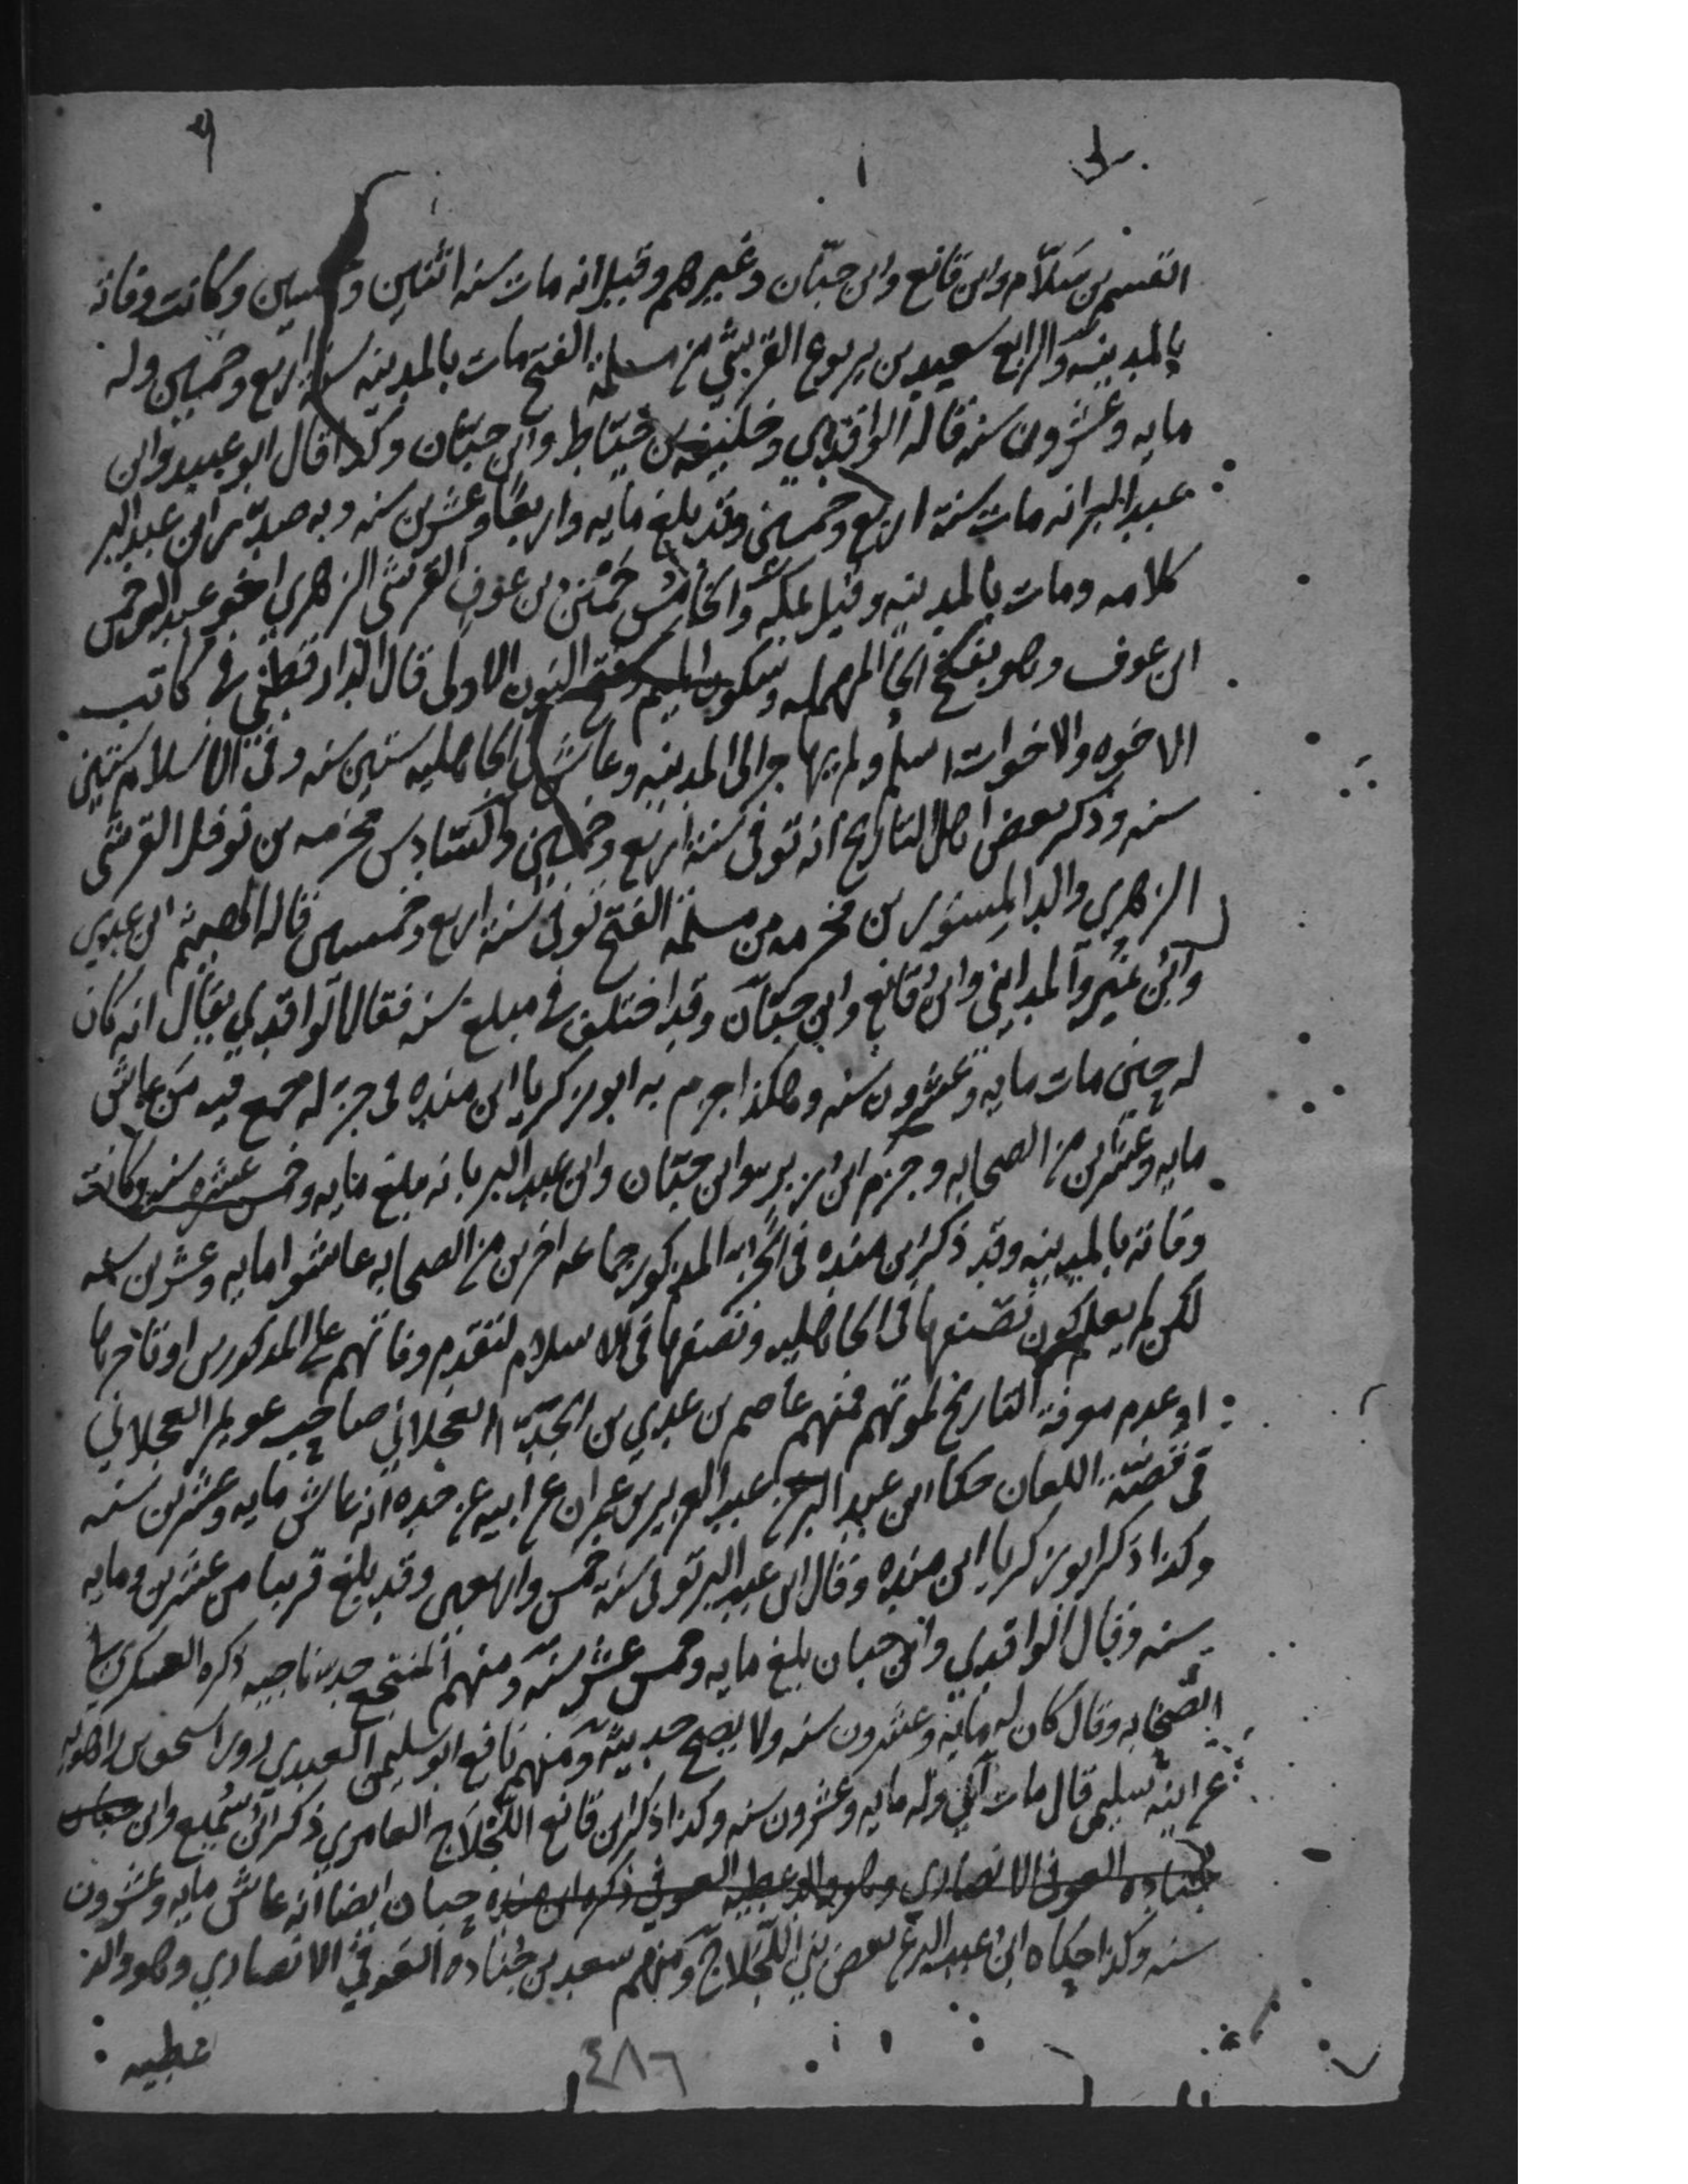 القسم بن سَلّام وابن قانع وابن حبّان وغيرهم وقيل انه مات سنه اثنتين وخمسين وكانت وفاته
بالمدينه والرابع سعيد بن يربوع القرشي من مسلمة الفتح مات بالمدينه سنة اربع وخمسين وله
مايه وعشرون سنه قاله الواقدي وخليفه بن خيّاط وابن حبّان وكذا قال ابو عبيد وابن
عبد البر انه مات سنة اربع وخمسين وقد بلغ مايه واربعًا وعشرين سنه وبه صدّر ابن عبد البر
كلامه ومات بالمدينه وقيل بمكه والخامس حَمْنَن بن عوف القرشي الزهري اخو عبد الرحمن
ابن عوف وهو بفتح الحا المهمله وسكون الميم وفتح النون الاولى قال الدارقطني في كاتب
الاخوه والاخوات اسلم ولم يهاجر الى المدينه وعاش في الجاهليه ستين سنه وفي الاسلام ستين
سنه وذكر بعض اهل التاريخ انه توفى سنة اربع وخمسين والسّادس مخرمه بن نوفل القرشي
الزهري والد المِسور بن مخرمه من مسلمة الفتح توفى سنة اربع وخمسين قاله الهيثم ابن عدي
وابن نمير والمدايني وابن قانع وابن حبّان وقد اختلف في مبلغ سنه فقال الواقدي يقال انه كان
له حين مات مايه وعشرون سنه وهكذا جزم به ابو زكريا ابن منده في جزء له جمع فيه من عاش
مايه وعشرين من الصحابه وجزم ابن زبر وابن حبّان وابن عبد البر بانه بلغ مايه وخمس عشره سنه وكانت
وفاته بالمدينه وقد ذكر ابن منده في الجزء المذكور جماعه اخرين من الصحابه عاشوا مايه وعشرين سنه
لكن لم يعلم كون نصفها في الجاهليه ونصفها في الاسلام لتقدم وفاتهم على المذكورين او تاخرها
او عدم معرفة التاريخ لموتهم فمنهم عاصم بن عدي بن الجدّ العجلاني صاحب عويمر العجلاني
في قصّة اللعان حكا ابن عبد البر عن عبد العزيز بن عمران عن ابيه عن جده انه عاش مايه وعشرين سنه
وكذا ذكر ابو زكريا ابن منده وقال ابن عبد البر توفى سنة خمس واربعين وقد بلغ قريبا من عشرين ومايه
سنه وقال الواقدي وابن حبان بلغ مايه وخمس عشر سنه ومنهم المنتجع جد ناجيه ذكره العسكري في
الصّحابه وقال كان له مايه وعشرون سنه ولا يصح حديثه ومنهم نافع ابو سليمن العبدي روى اسحق بن راهويه
عن ابنه سليمن قال مات ابي وله مايه وعشرون سنه وكذا ذكر ابن قانع اللّجلاج العامري ذكر ابن سُميع وابن حبان
جناده العوفي الانصاري وهو والد عطيه العوفي ذكره ابن منده حبان ايضا انه عاش مايه وعشرون
سنه وكذا حكاه ابن عبد البر عن بعض بني اللّجلاج ومنهم سعد بن جُناده العَوفي الانصاري وهو والد
عطيه
٤٨٦